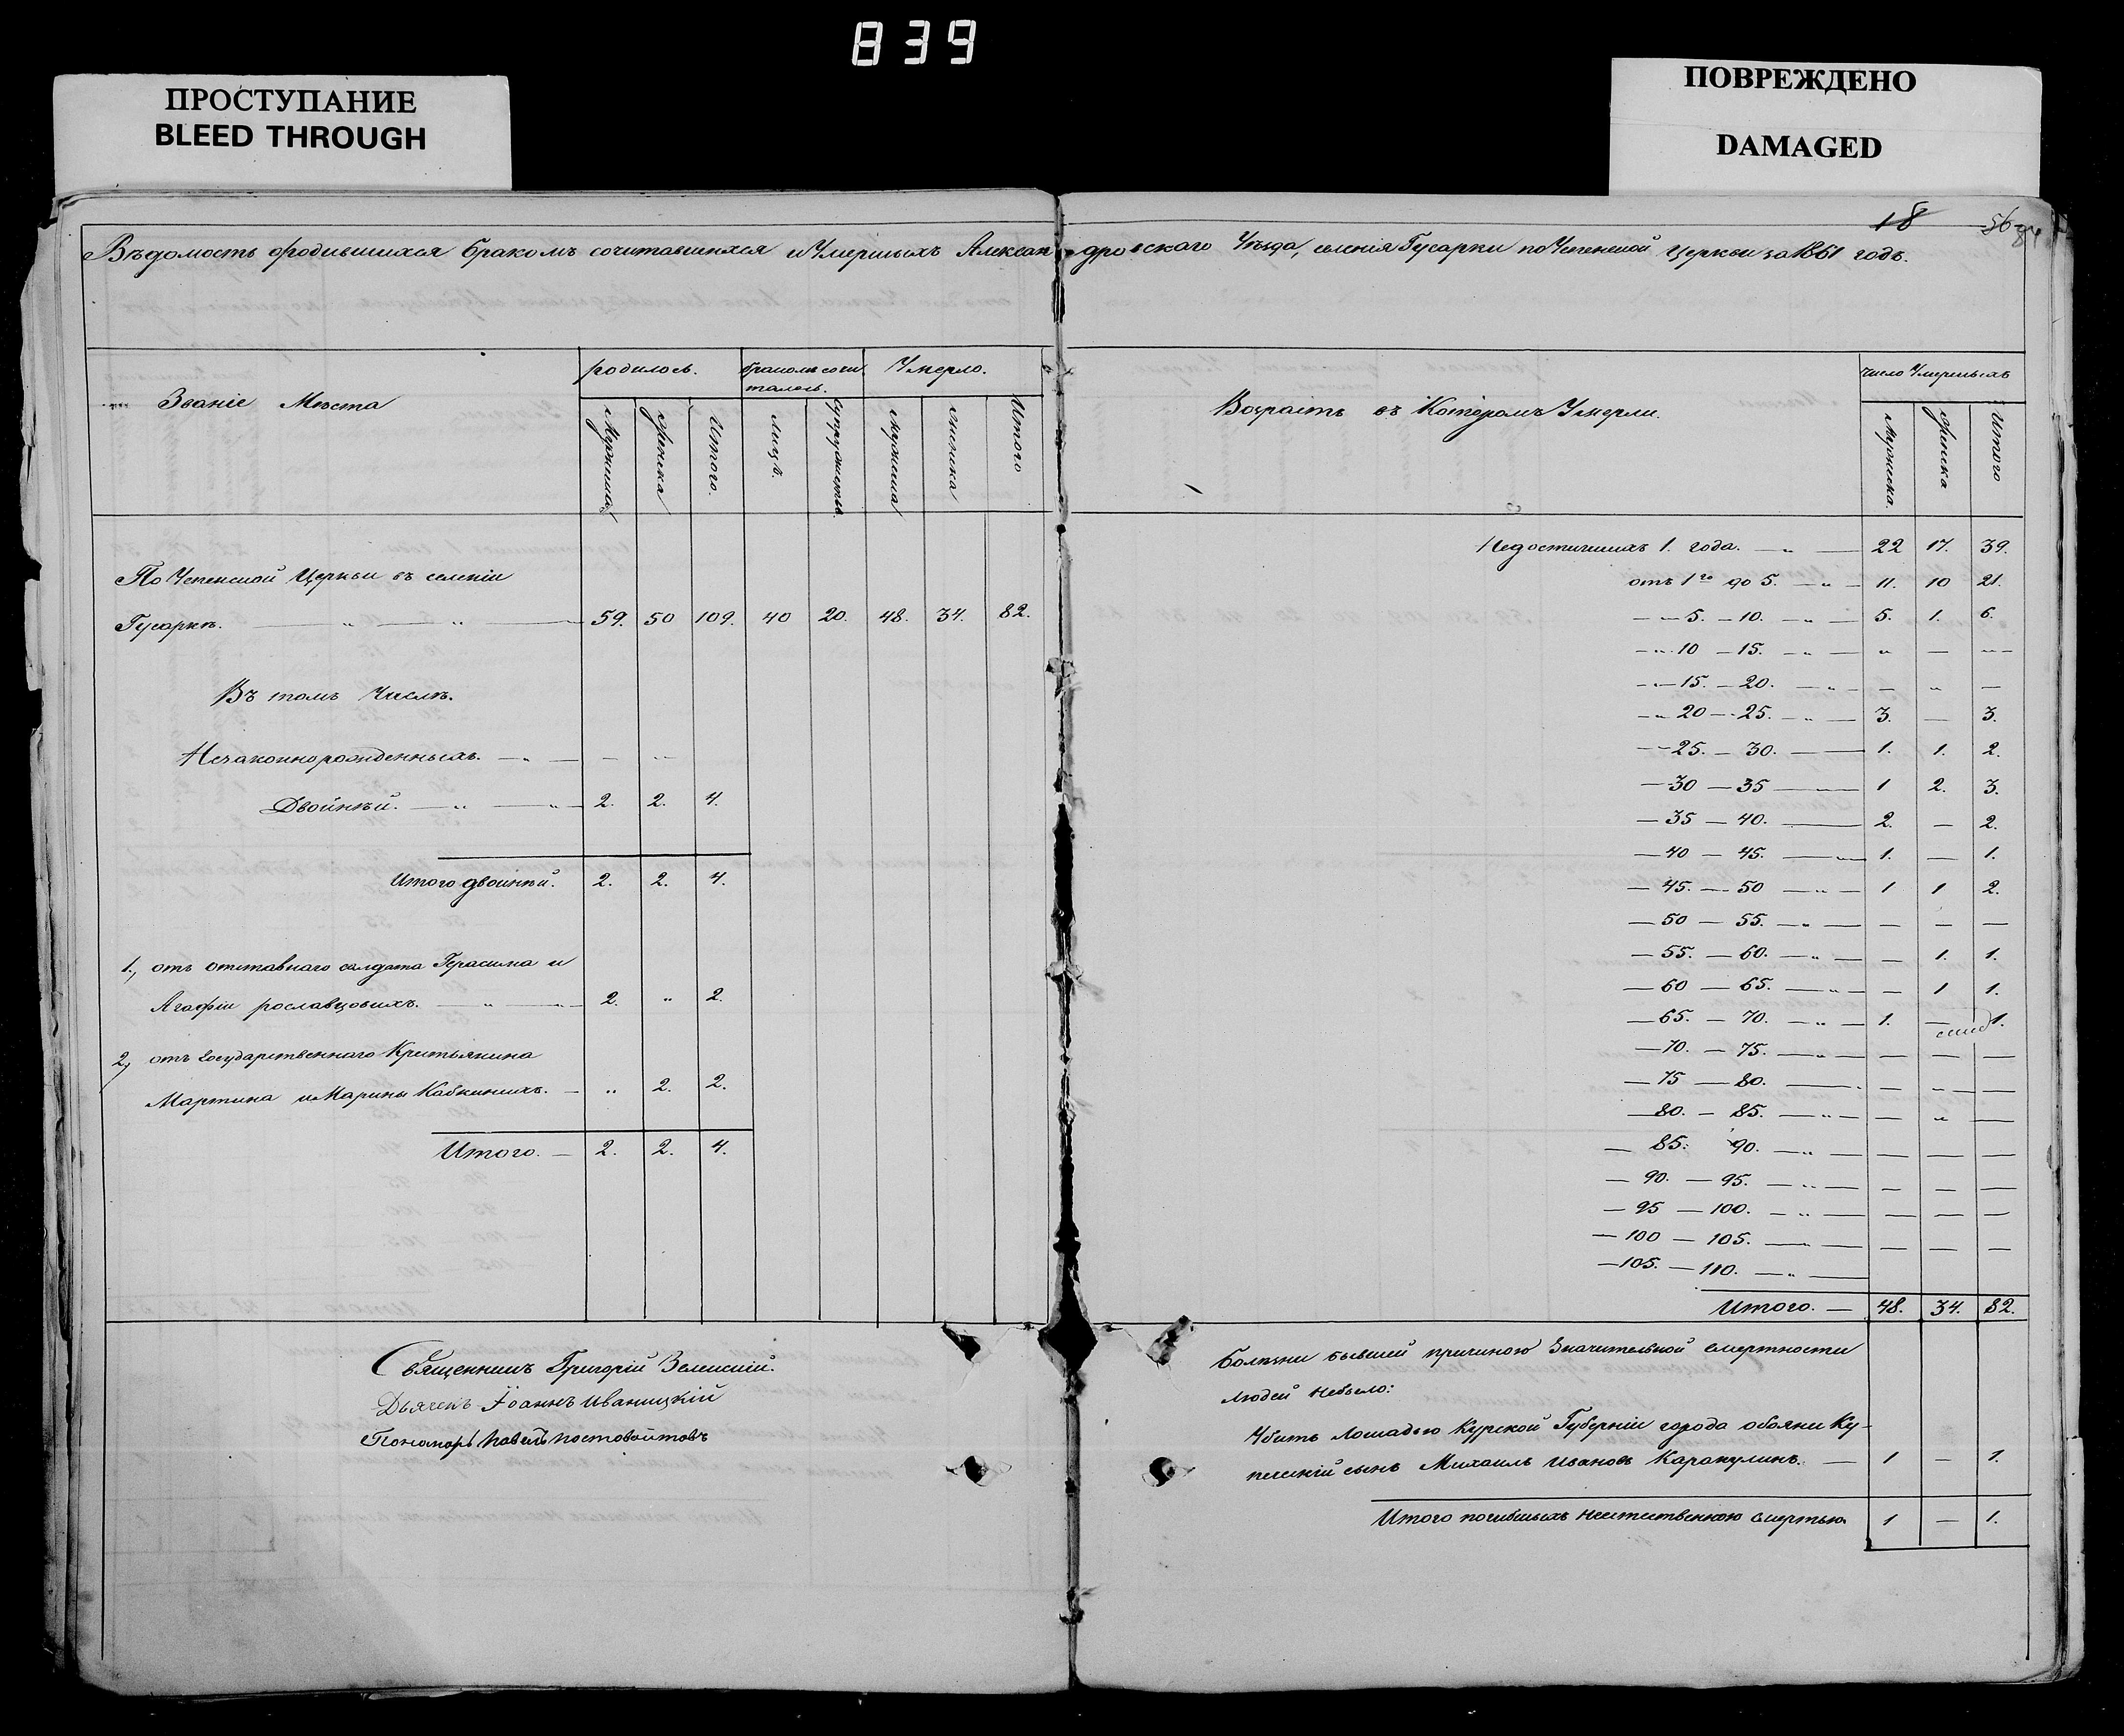 839
ПРОСТУПАНИЕ
BLEED THROUGH
ПОВРЕЖДЕНО
DAMAGED
18
Вѣдомость о родившихся бракомъ сочитавшихся и Умершыхъ Александровскаго Уѣзда, селенія Гусарки по Успенской Церкви за 1861 годъ.
Званіе Мѣста
родилось.
бракомъ сочи
талось.
Умерло.
Мужеска
Женска
Итого.
лицъ.
супружествъ.
мужеска
женска
Итого
По Успенской Церкви въ селеніи
Гусаркѣ. — „ — „ — 59. 50 109. 40 20. 48. 34. 82.
Въ томъ Числѣ.
Незаконнорожденныхъ. — „ — — „
Двойнѣй. — „ — „ — 2. 2. 4.
Итого двоинѣй. 2. 2. 4.
1., отъ отставнаго солдата Герасима и
Агафіи рославцовыхъ. — „ — „ — 2. „ 2.
2., отъ государственнаго Крестьянина
Мартина и Марины Кабкиныхъ. — „ 2. 2.
Итого. — 2. 2. 4.
Священникъ Григорій Зелинскій.
Дьячекъ Іоаннъ Иваницкій
Пономарь Павелъ Постовойтовъ
Возрастъ въ Которомъ Умерли.
число Умершыхъ
Мужеска.
Женска
Итого
Недостигшихъ 1. года. — „ — 22 17. 39.
отъ 1го до 5. — „ — 11. 10 21.
— „ — 5. — 10. — „ — 5. 1. 6.
— „ — 10 — 15. — „ — „ — „ —
— „ — 15. — 20. — „ — — „ —
— „ 20 — 25. — „ — 3. — 3.
— „ — 25. — 30. — 1. 1. 2.
— 30 — 35 — „ — 1 2. 3.
— 35 — 40. — 2. — 2.
— 40 — 45. — „ — 1. — 1.
— 45. — 50 — „ — 1 1 2.
— 50 — 55. — „ — — — —
— 55. — 60. — „ — — 1. 1.
— 60 — 65. — „ — — 1 1.
— 65. — 70. — „ — 1. — 1.
— 70. — 75. — „ — — — —
— 75 — 80. — — „ —
— 80. — 85. — „ — — „ —
— 85. 90. — „ — — — —
— 90. — 95. — „ — — — —
— 95 — 100. — „ — — — —
— 100 — 105. — „ — — — —
— 105. — 110. — „ —
Итого. — 48. 34. 82.
Болѣзни бывшей причиною Значительной смертности
Людей небыло:
Убитъ Лошадью Курской Губерніи города обояни Ку-
печескій сынъ Михаилъ Ивановъ Каракулинъ. — 1 — 1.
Итого погибшыхъ неестественною смертью. 1 — 1.